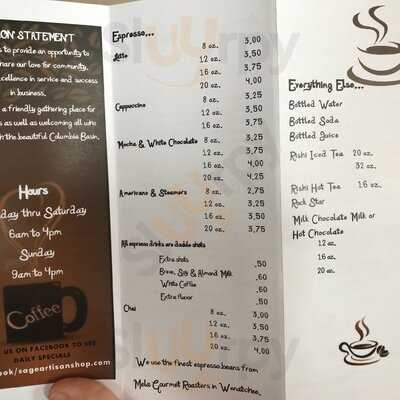 ON STATEMENT
s to provide an opportunity to
hare our love for community,
xcellence in service and success
in business.
a friendly gathering place for
s as well as welcoming all who
h the beautiful Columbia Basin.
Hours
day thru Saturday
6am to 4pm
Sunday
9am to 4pm
Coffee
US ON FACEBOOK TO SEE
DAILY SPECIALS
ook/sageartisanshop.com
Espresso...
Latte 8 oz. 3,00
12 oz. 3,50
16 oz. 3,75
20 oz. 4,00
Cappuccino 8 oz. 3,25
12 oz. 3,50
16 oz. 3,75
Mocha & White Chocolate 8 oz. 3,25
12 oz. 3,75
16 oz. 4,00
20 oz. 4,25
Americano & Steamers 8 oz. 2,75
12 oz. 3,25
16 oz. 3,50
20 oz. 3,75
All espresso drinks are double shots
Extra shots .50
Breve, Soy & Almond Milk .60
White Coffee .60
Extra flavor .50
Chai 8 oz. 3,00
12 oz. 3,50
16 oz. 3,75
20 oz. 4,00
We use the finest espresso beans from
Mela Gourmet Roasters in Wenatchee.
Everything Else...
Bottled Water
Bottled Soda
Bottled Juice
Rishi Iced Tea 20 oz.
32 oz.
Rishi Hot Tea 16 oz.
Rock Star
Milk Chocolate Milk or
Hot Chocolate
12 oz.
16 oz.
20 oz.
Sluurpy